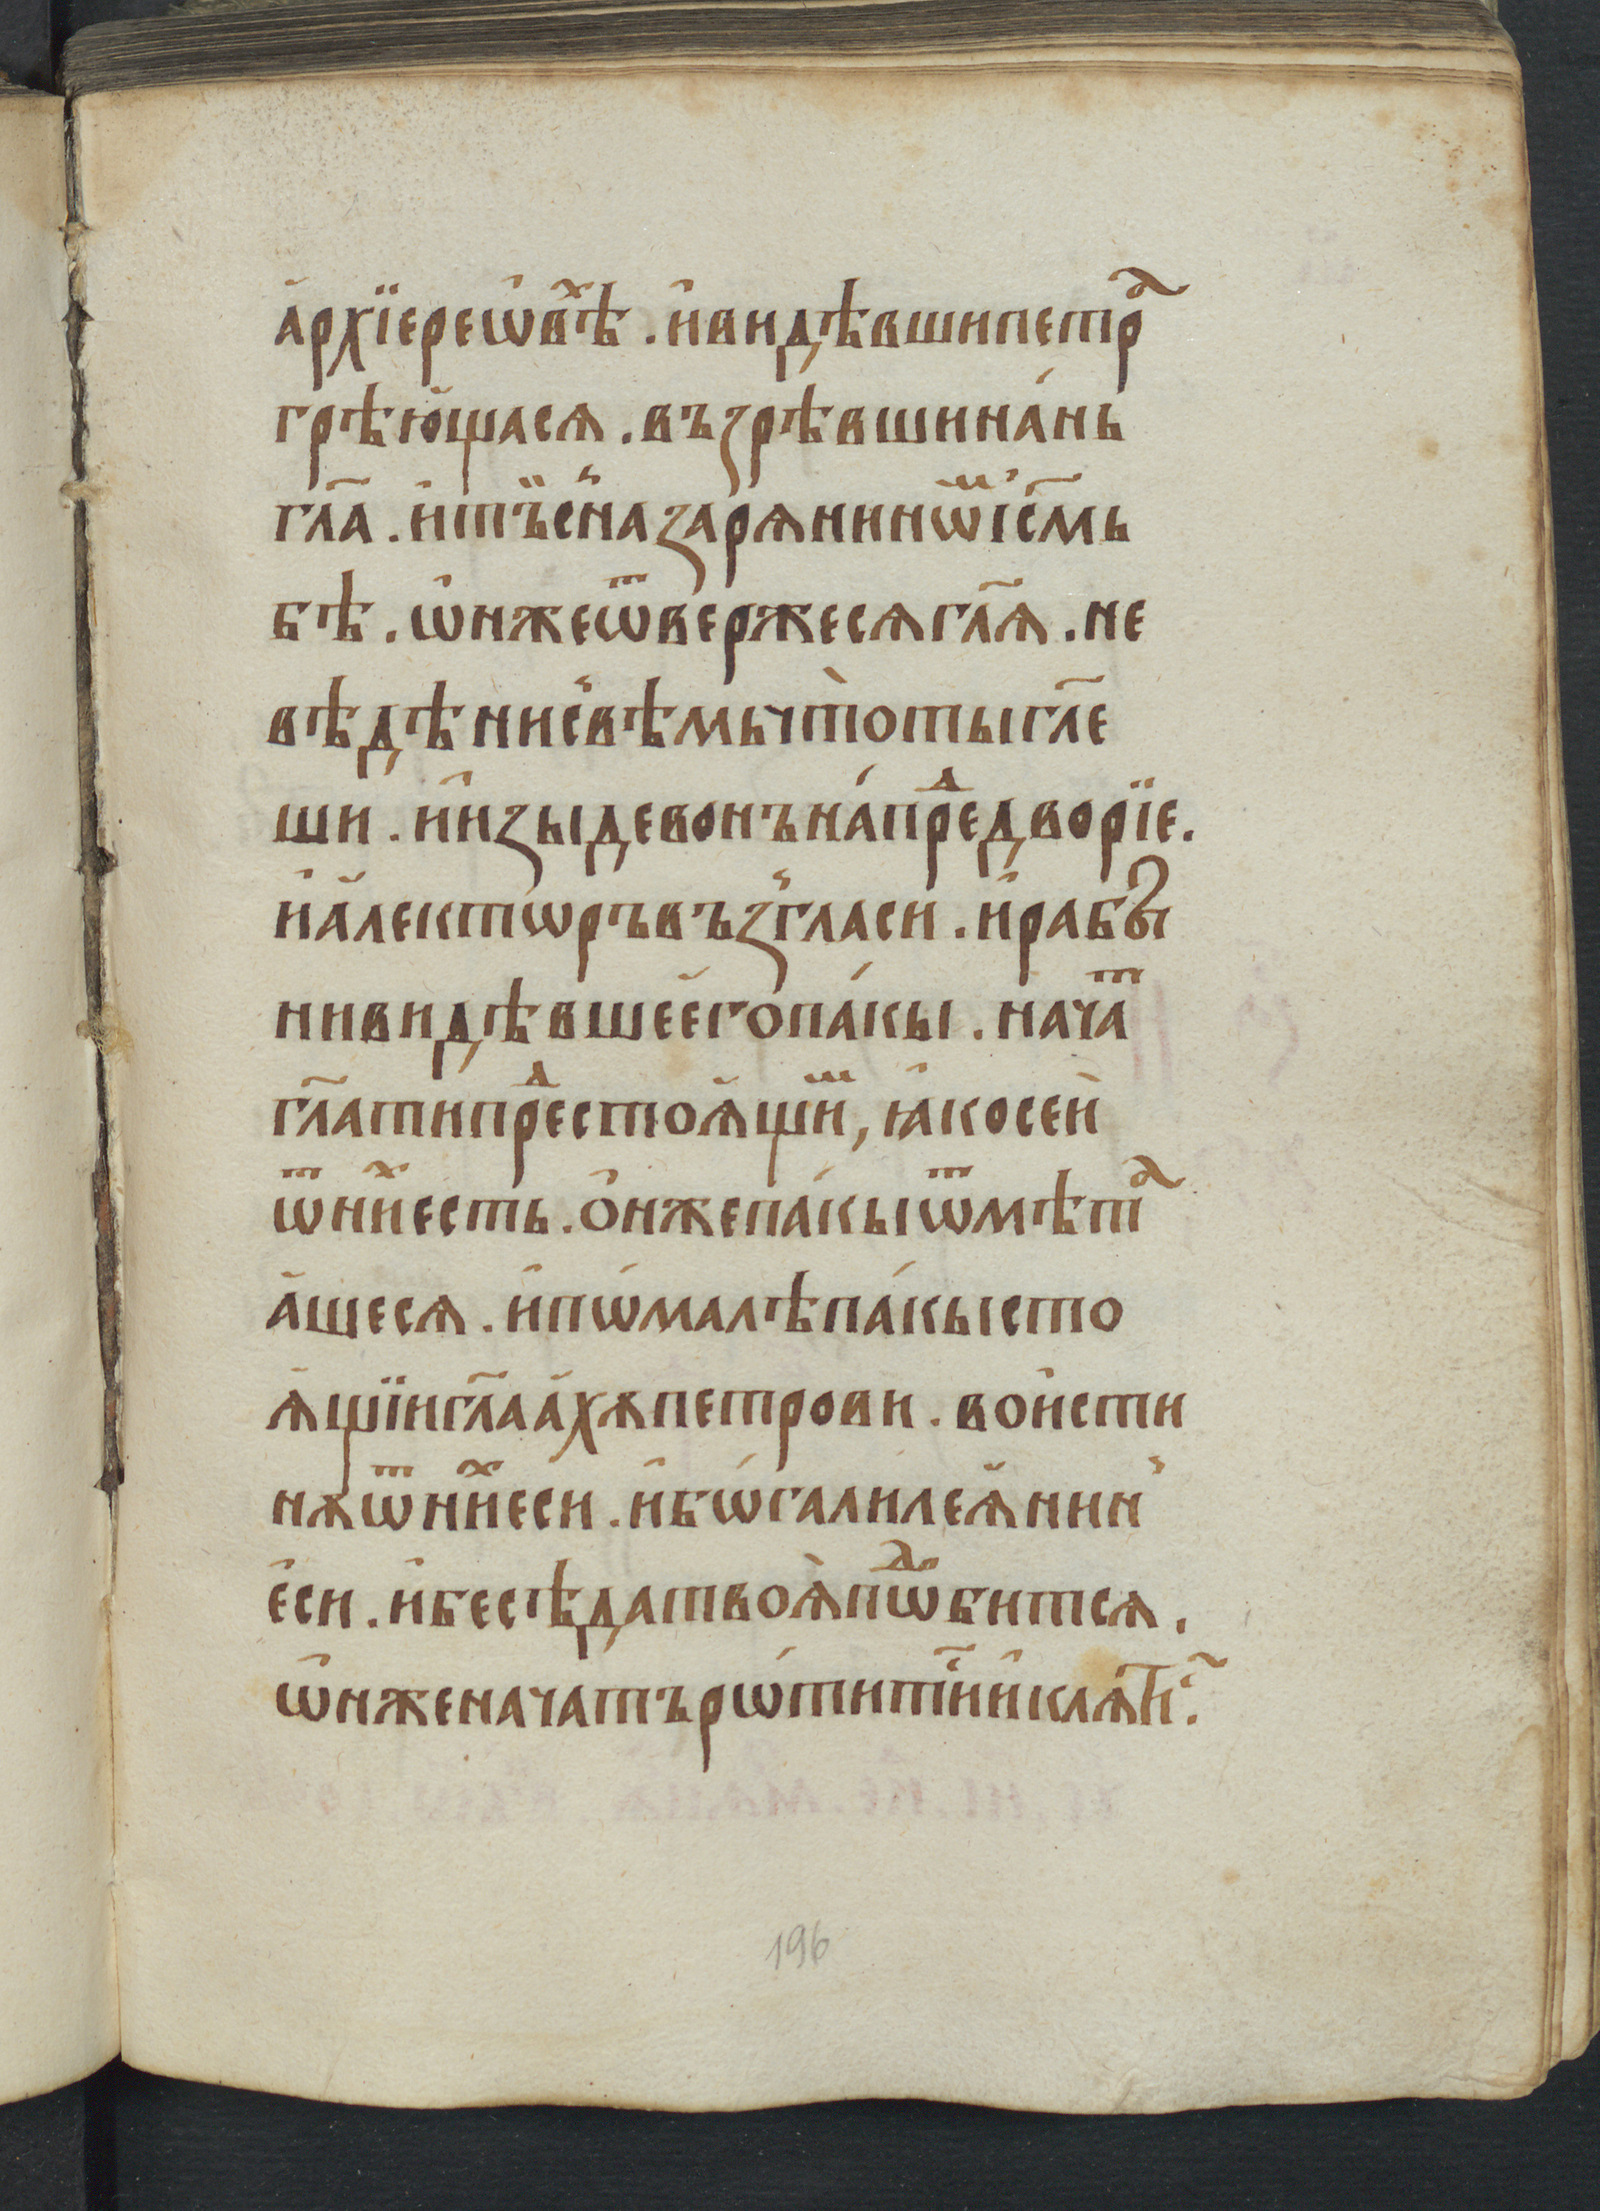 а҆рхїерео҆вⷯѣ . и҆видѣвшипетрⷶ
грѣю҆щася . възрѣвшина́нь
гл҃а . и҆тъ̈і с̾назарянинѿіс҃мь
бѣ . ѡ҆нжеѿвержесягл҃я . не
вѣдѣнис̾вѣмьчто̀тыгл҃е
ши . и҆изыдевонъна́прⷣедворїе.
и҆а҆лектѡръвъз̾гласи . и҆рабы
нивидѣвшеегопа́кы . начаⷮ
гл҃атипрⷣестоя҆щиⷨ, ꙗ҆косеѝ
ѿниⷯесть . о҆нжепа́кыѿмѣтⷶ
а҆шеся . и҆пѡ́малѣпа́кысто
я҆щїигл҃аа҆хѫпетрови . вои҆сти
нѫѿниⷯеси . и҆бѡ́галилея҆нин̾
е҆си . и҆бесѣдатвоя̀пѡⷣбится .
ѡ҆нженачатърѡ́тити҃и҆кляти҃.
196